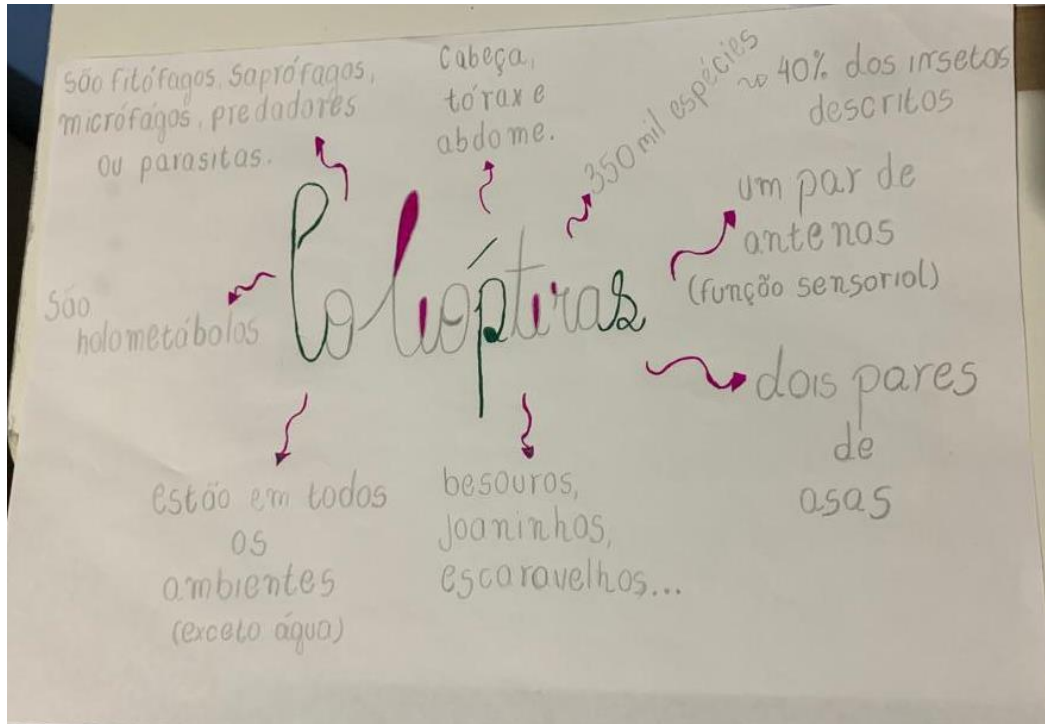 São fitófagos, saprófagos,
micrófagos, predadores
ou parasitas.
Cabeça,
tórax e
abdome.
350 mil espécies
~ 40% dos insetos
descritos
um par de
antenas
(função sensorial)
São
holometábolos
Coleópteras
dois pares
de
asas
estão em todos
os
ambientes
(exceto água)
besouros,
joaninhas,
escaravelhos...